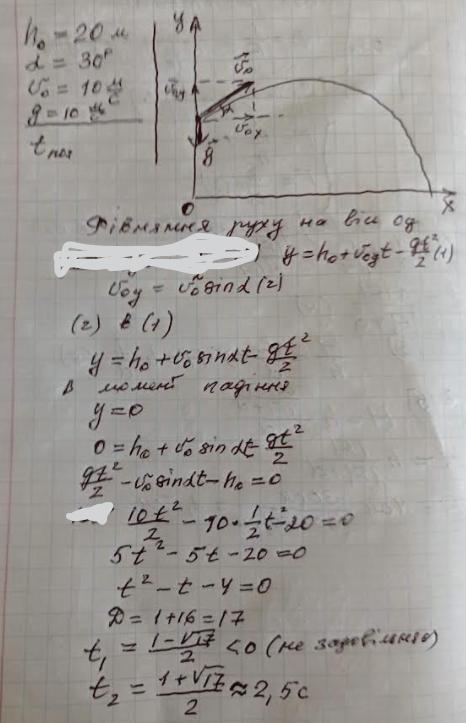 h₀ = 20 м
α = 30°
v₀ = 10 м/с
g = 10 м/с
t пол
y
v⃗₀
v₀y
α
v₀x
g⃗
0
x
Рівняння руху на вісі оу
y = h₀ + v₀y t - gt²/2 (1)
v₀y = v₀ sinα (2)
(2) в (1)
y = h₀ + v₀ sinαt - gt²/2
В момент падіння
y = 0
0 = h₀ + v₀ sinαt - gt²/2
gt²/2 - v₀ sinαt - h₀ = 0
10t²/2 - 10·1/2 t - 20 = 0
5t² - 5t - 20 = 0
t² - t - 4 = 0
D = 1 + 16 = 17
t₁ = (1-√17)/2 < 0 (не задовільняє)
t₂ = (1+√17)/2 ≈ 2,5с